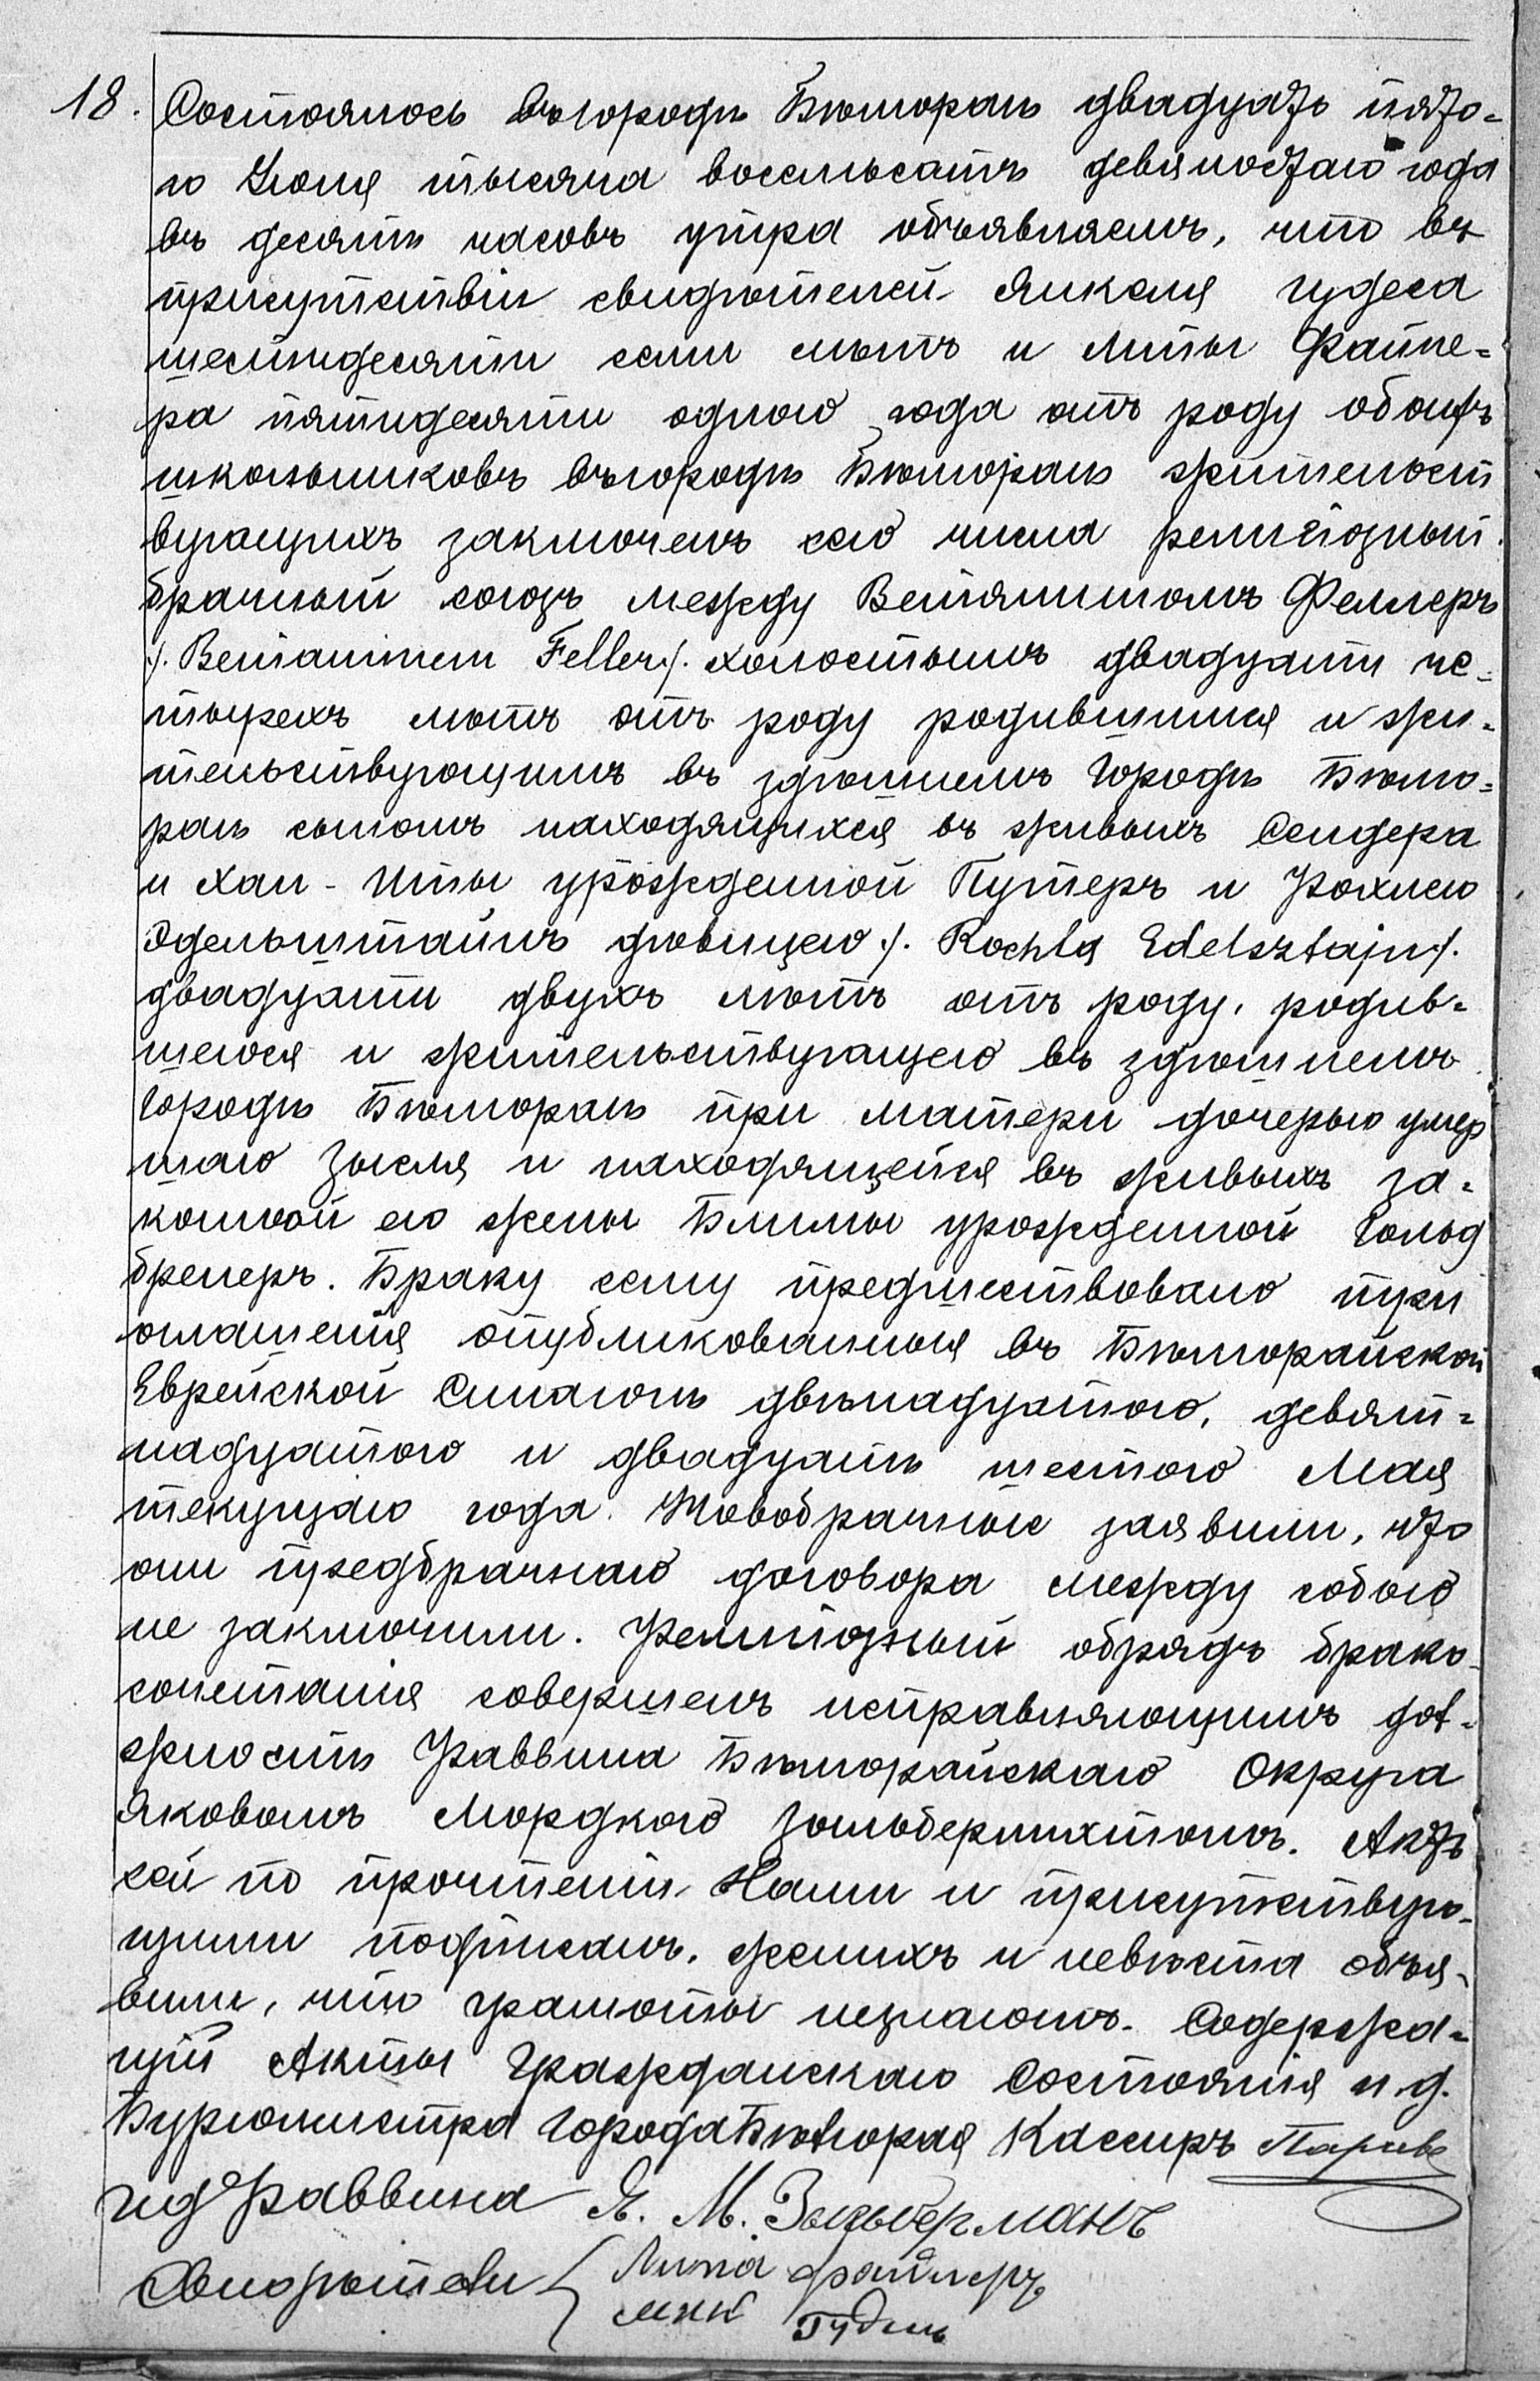 18. Состоялось въ городѣ Бѣлгораѣ двадцать пято-
го Іюня тысяча восемьсотъ девяностаго года
въ десять часовъ утра объявляемъ, что въ
присутствіи свидѣтелей Янкеля Гудеса
шестидесяти семи лѣтъ и Липы Файне-
ра пятидесяти одного года отъ роду обоихъ
школьниковъ въ городѣ Бѣлгораѣ жительст
вующихъ заключенъ сего числа религіозный
брачный союзъ между Веніяминомъ Феллеръ
/. Beniaminem Feller ./ холостымъ двадцати че-
тырехъ лѣтъ отъ роду родившимся и жи-
тельствующимъ въ здѣшнемъ городѣ Бѣлго-
раѣ сыномъ находящихся въ живыхъ Сендера
и Хаи-Иты урожденной Путеръ и Рохлею
Эдельштайнъ дѣвицею /. Rochla Edelsztajn ./
двадцати двухъ лѣтъ отъ роду, родив-
шеюся и жительствующею въ здѣшнемъ
городѣ Бѣлгораѣ при матери дочерью умер
шаго Зыселя и находящейся въ живыхъ за-
конной его жены Блимы урожденной Гольд
бренеръ. Браку сему предшествовало три
оглашенія опубликованныя въ Бѣлгорайской
Еврейской Синагогѣ двѣнадцатого, девят-
надцатого и двадцать шестого Мая
текущаго года. Новобрачные заявили, что
они предбрачнаго договора между собою
не заключили. Религіозный обрядъ брако-
сочетанія совершенъ исправляющимъ дол-
жность Раввина Бѣлгорайскаго Округа
Яковомъ Мордкою Зильберлихтомъ. Актъ
сей по прочтеніи Нами и присутствую-
щими подписанъ. Женихъ и невѣста объя-
вили, что грамоты незнаютъ. Содержа-
щій Акты Гражданскаго Состоянія и. д.
Бургомистра Города Бѣлгорая Кассиръ
ИД Раввина Я. М. Зильберманъ
Свидѣтели { Липа Файнеръ
Гудесъ